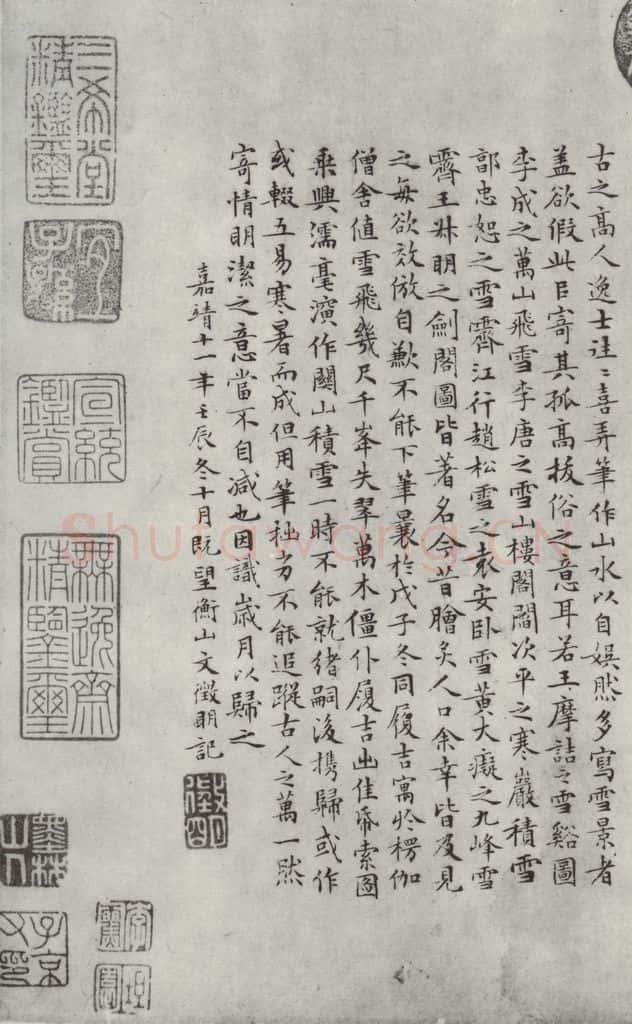 古之高人逸士往〻喜弄筆作山水以自娛然多寫雪景者
盖欲假此以寄其孤高拔俗之意耳若王摩詰之雪谿圖
李成之萬山飛雪李唐之雪山樓閣閻次平之寒巖積雪
郭忠恕之雪霽江行趙松雪之袁安卧雪黄大癡之九峰雪
霽王叔明之劍閣圖皆著名今昔膾炙人口余幸皆及見
之每欲效倣自歉不能下筆曩於戊子冬同履吉寓於楞伽
僧舍值雪飛幾尺千峯失翠萬木僵仆履吉出佳紙索圖
乘興濡毫演作關山積雪一時不能就緒嗣後携歸或作
或輟五易寒暑而成但用筆拙劣不能追蹤古人之萬一然
寄情明潔之意當不自減也因識歲月以歸之
嘉靖十一年壬辰冬十月既望衡山文徵明記
徵明
三希堂精鑑璽
宜子孫
宣統鑑賞
無逸齋精鑒璽
墨林山人
子京父印
Shufawang.CN